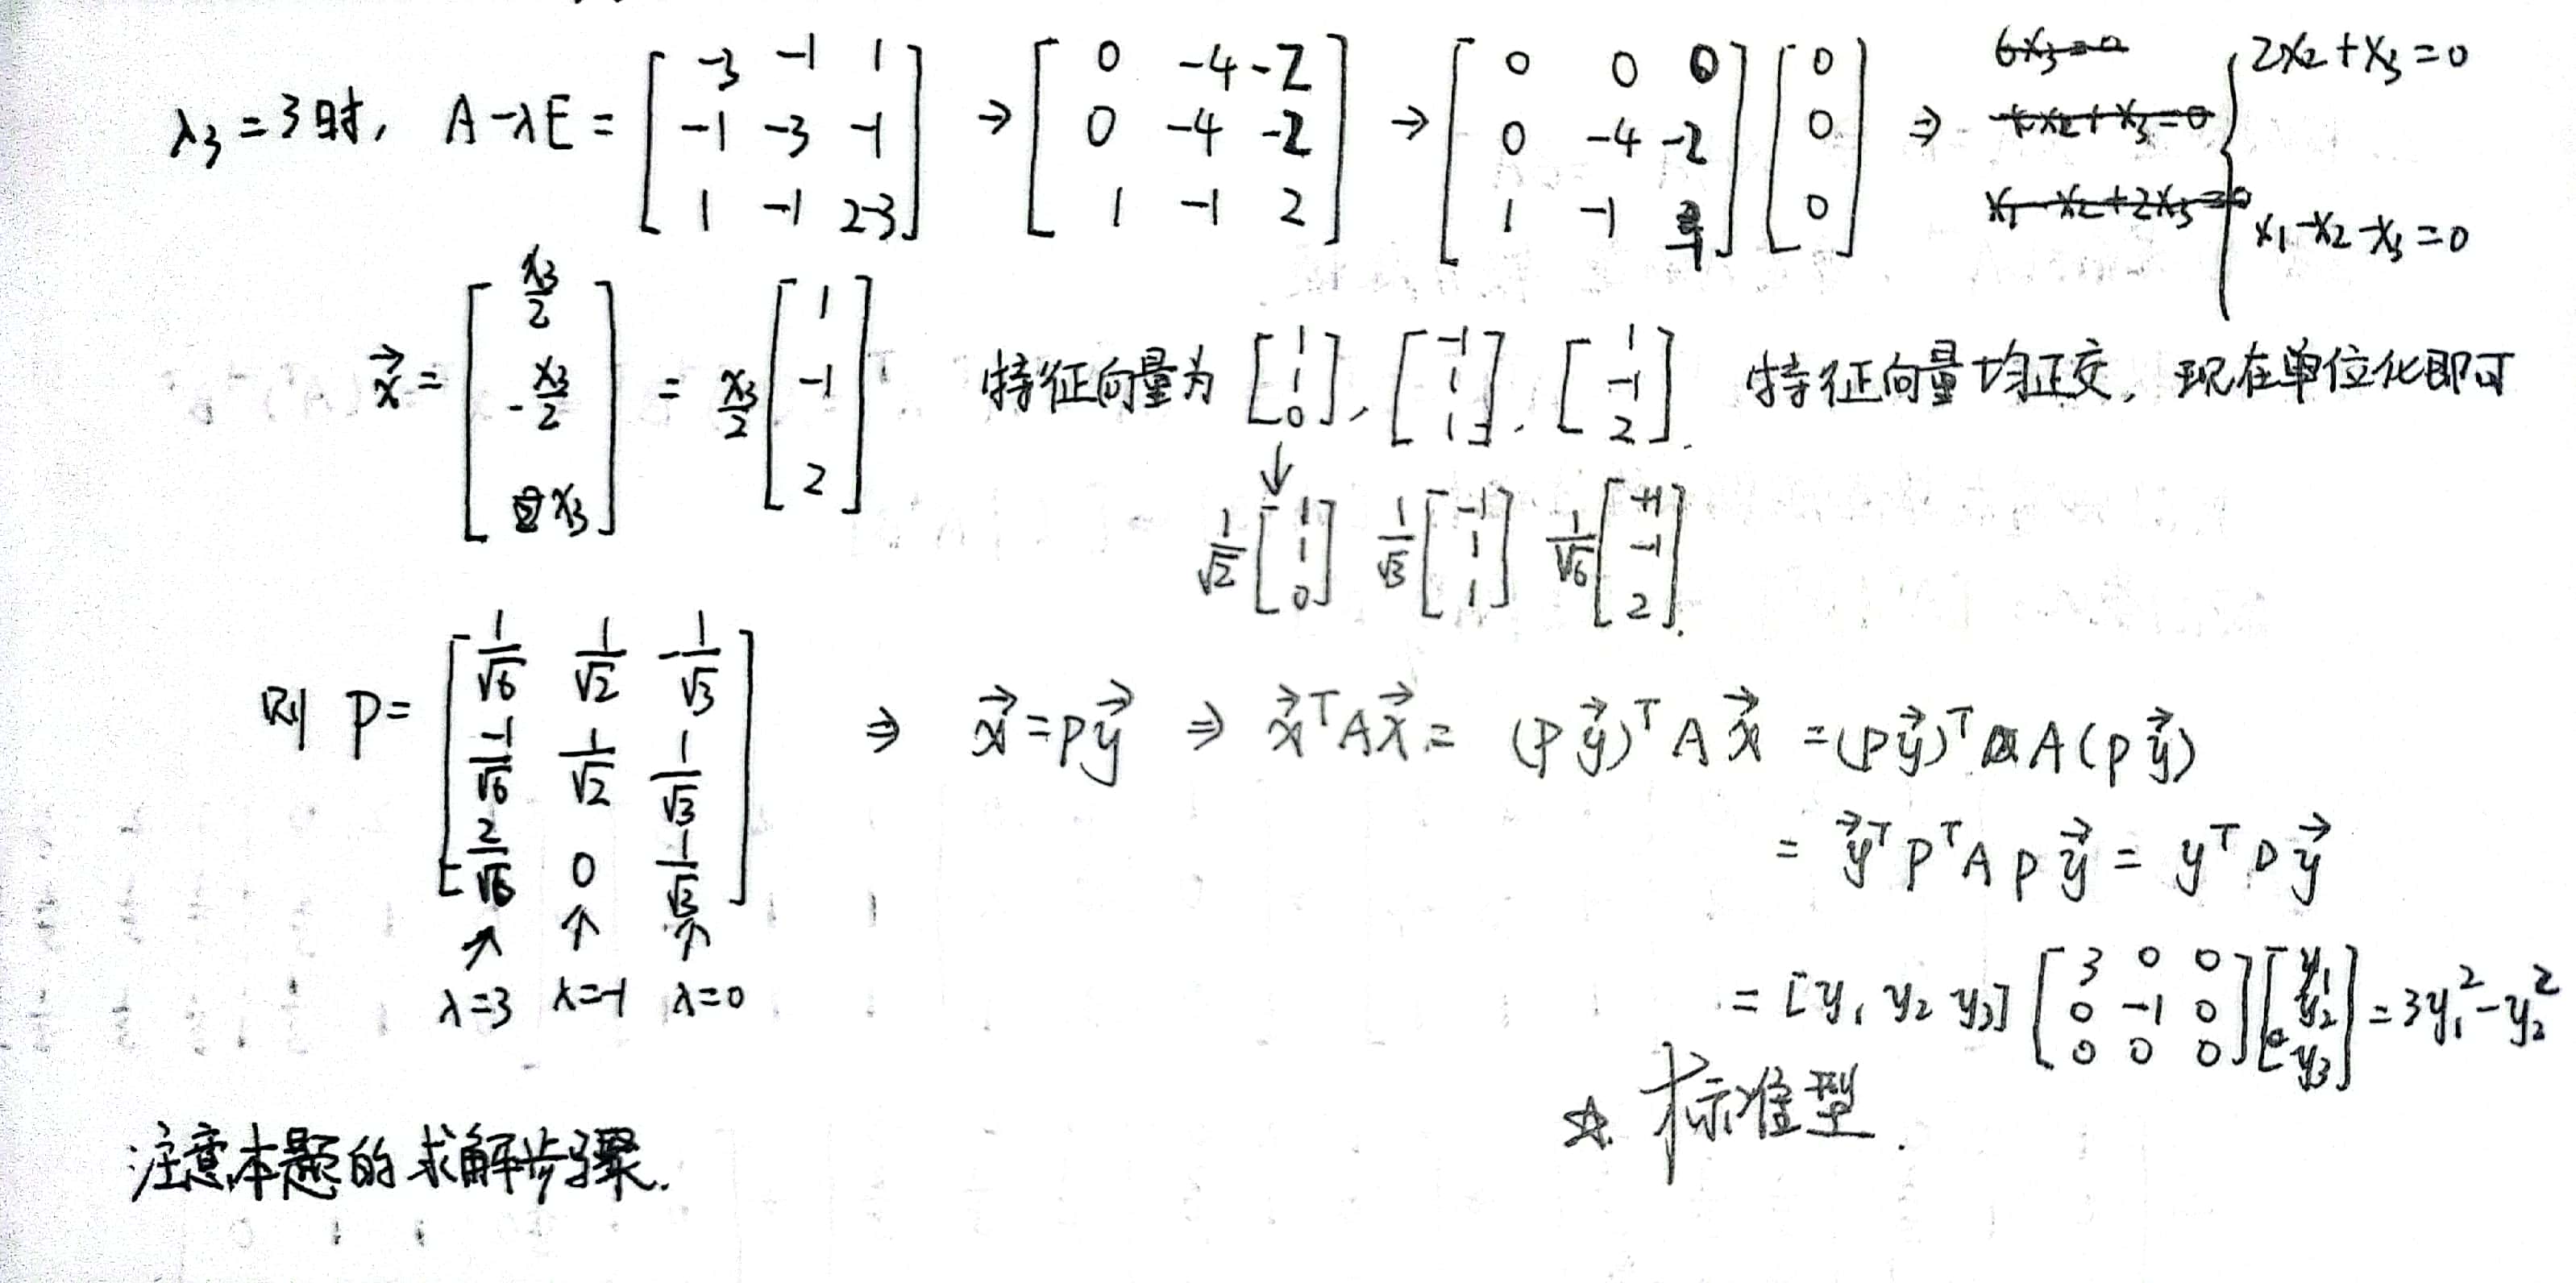 λ₃=3时, A-λE = [-3 -1 1; -1 -3 -1; 1 -1 2-3] → [0 -4 -2; 0 -4 -2; 1 -1 2] → [0 0 0; 0 -4 -2; 1 -1 ] [0; 0; 0] ⇒ { 2x₂+x₃=0
x₁-x₂-x₃=0
x⃗ = [x₃/2; -x₃/2; x₃] = x₃/2 [1; -1; 2] 特征向量为 [1; 1; 0], [-1; 1; 1], [1; -1; 2]. 特征向量均正交, 现在单位化即可
↓
1/√2 [1; 1; 0] 1/√3 [-1; 1; 1] 1/√6 [+1; -1; 2].
则 P= [1/√6 1/√2 -1/√3; -1/√6 1/√2 1/√3; 2/√6 0 1/√3] ⇒ x⃗=Py⃗ ⇒ x⃗ᵀAx⃗ = (Py⃗)ᵀAx⃗ =(Py⃗)ᵀA(Py⃗)
= y⃗ᵀPᵀAPy⃗ = yᵀDy⃗
↗ ↑ ↑
λ=3 λ=-1 λ=0
= [y₁ y₂ y₃] [3 0 0; 0 -1 0; 0 0 0] [y₁; y₂; y₃] = 3y₁²-y₂²
☆. 标准型.
注意本题的求解步骤.